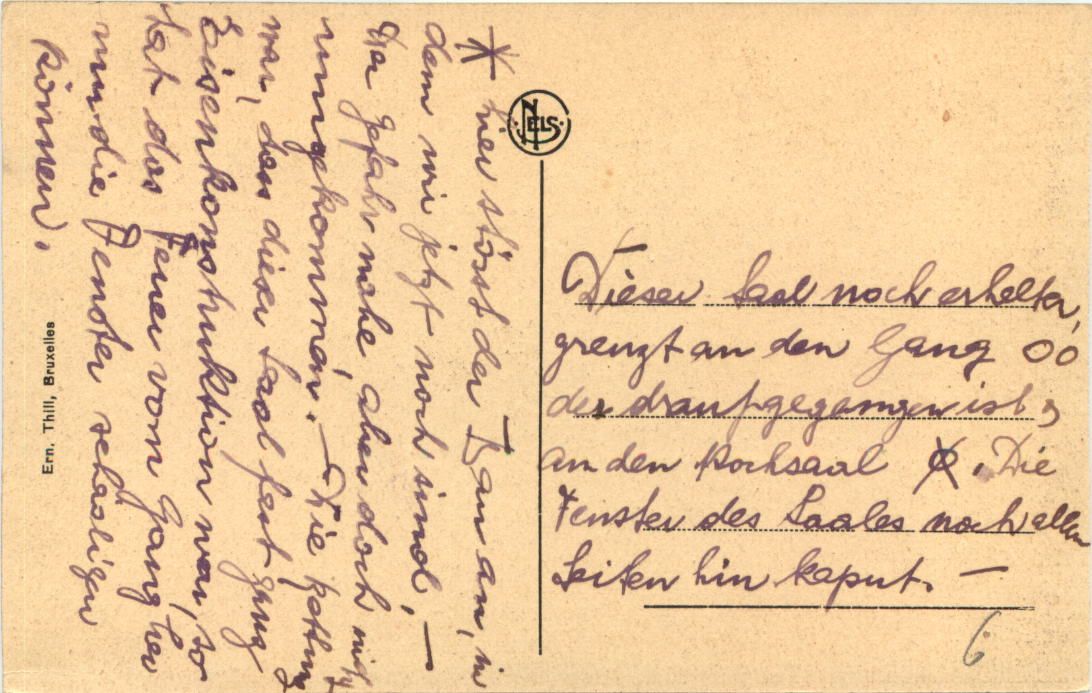 * hier stösst der Bau an, in
dem wir jetzt noch sind, —
der Gefahr nahe, aber doch nicht
umgekommen. — Die Rettung
war, dass dieser Saal fest genug
Eisenkonstruktion war, so
hat das Feuer vom Gang her
nur die Fenster schädigen
können.
Ern. Thill, Bruxelles
NELS
Dieser Saal noch erhalten,
grenzt an den Gang OO
der draufgegangen ist,
an den Kochsaal X. Die
Fenster des Saales nach allen
Seiten hin kaput. —
6